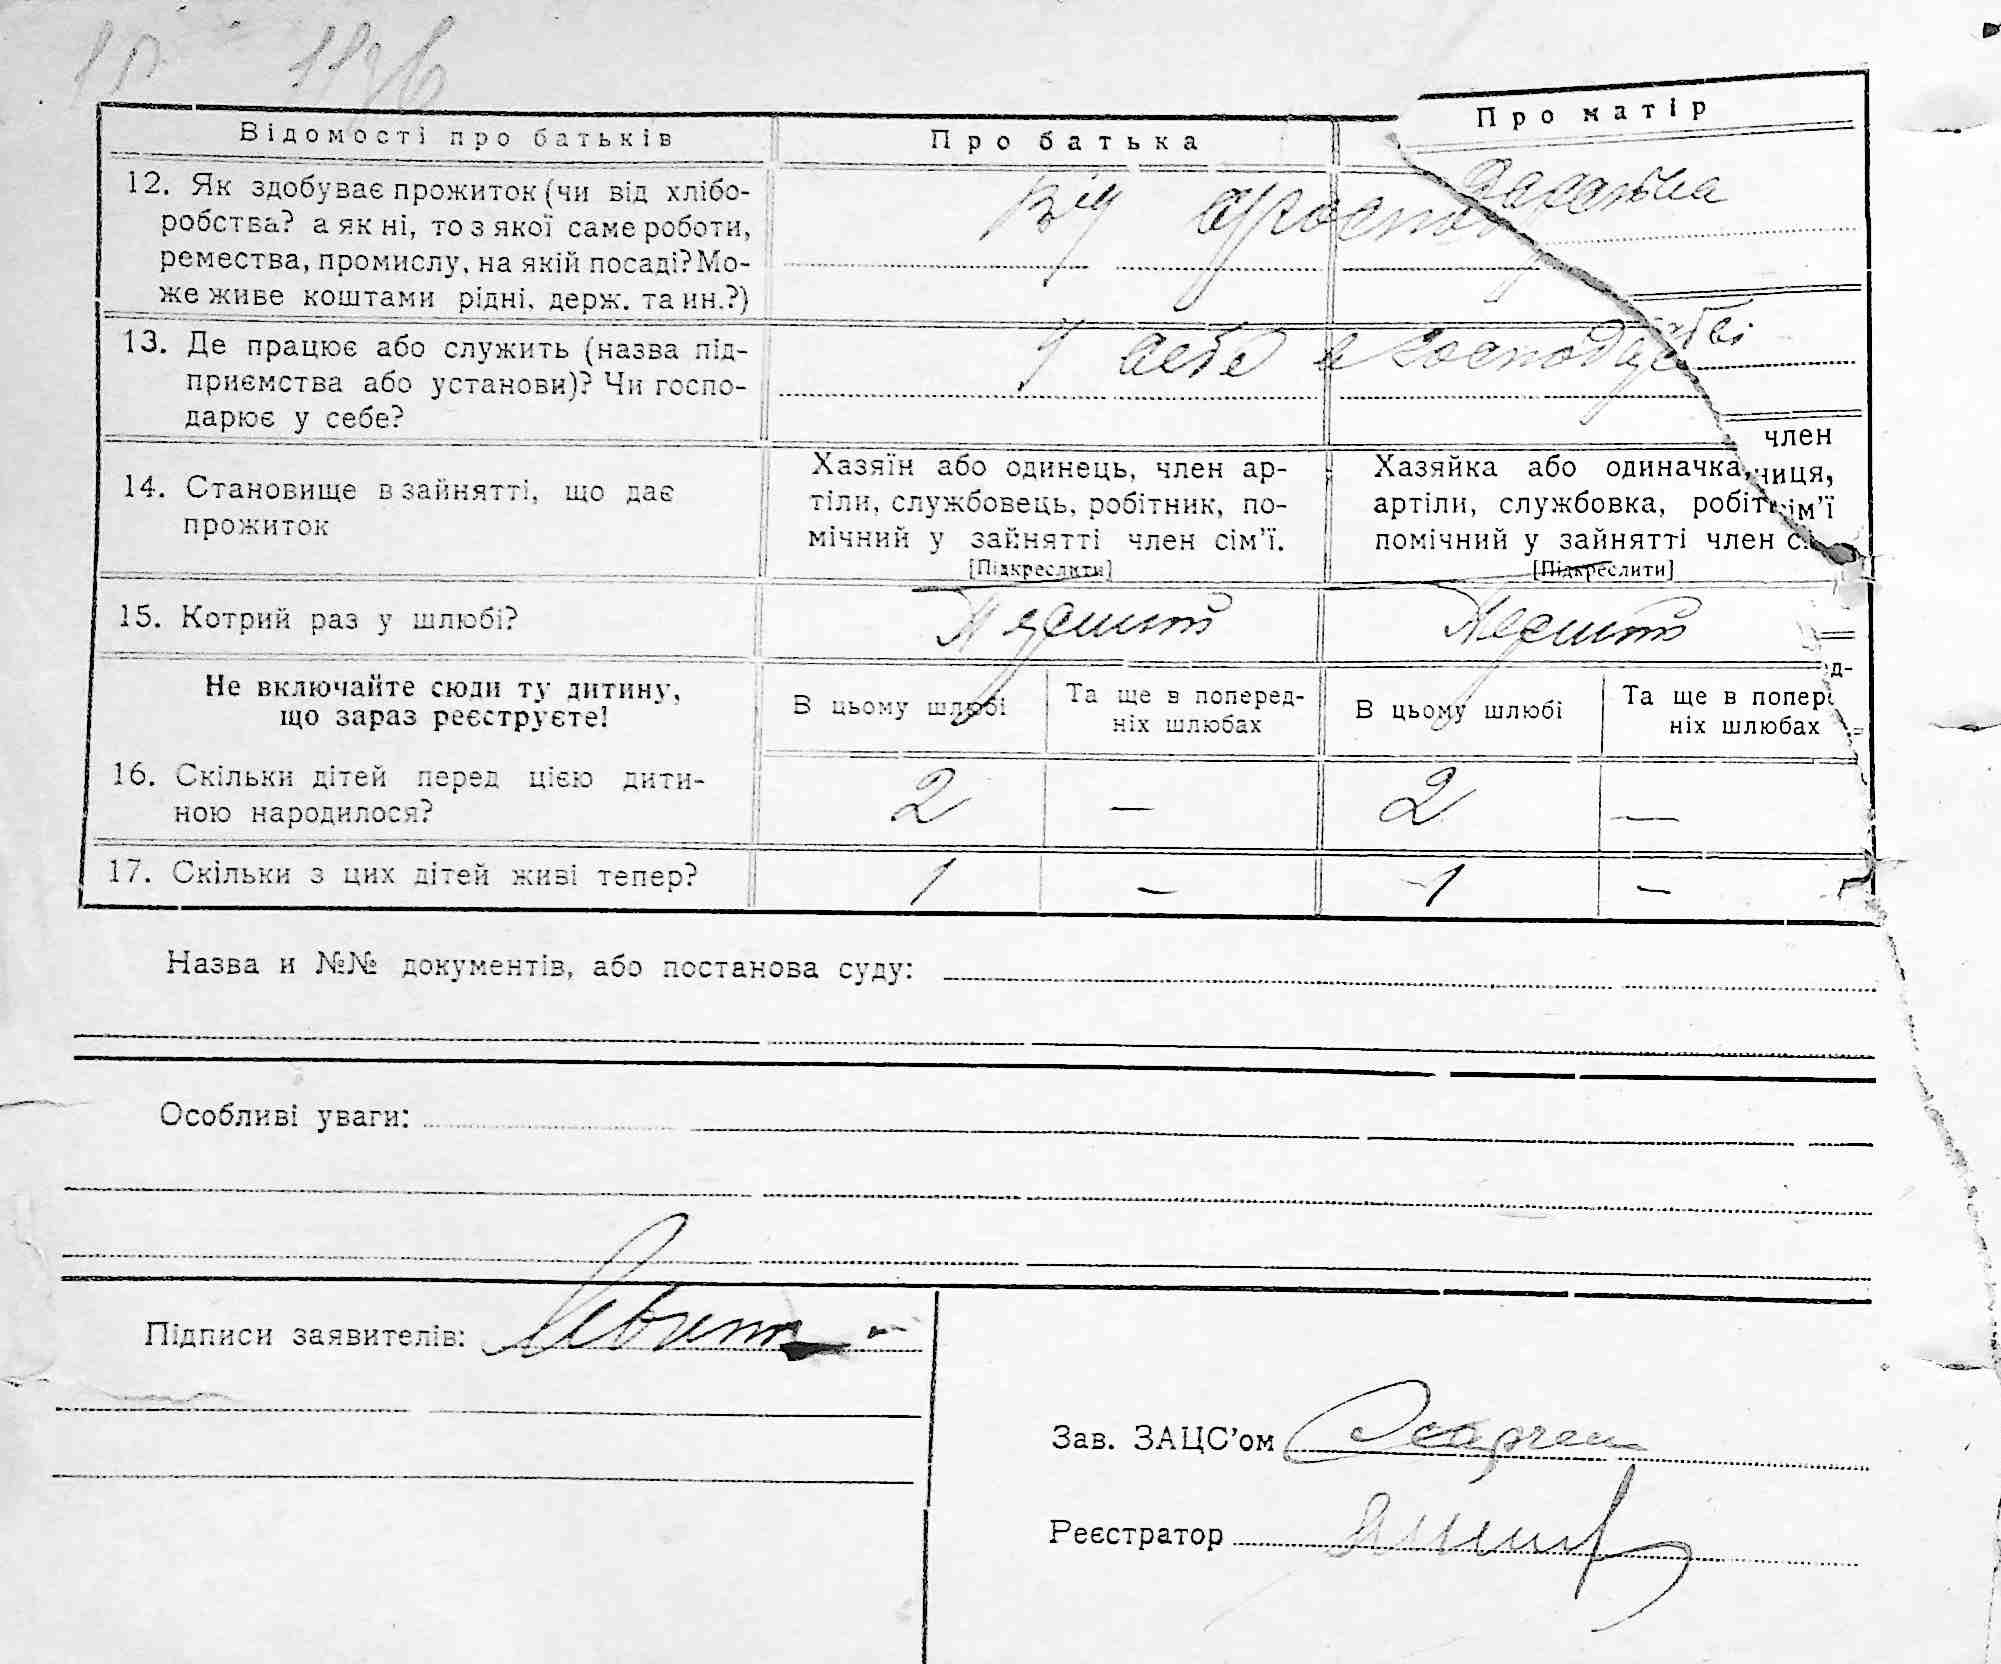 1136
Відомості про батьків
Про батька
Про матір
12. Як здобуває прожиток (чи від хлібо-
робства? а як ні, то з якої саме роботи,
ремества, промислу, на якій посаді? Мо-
же живе коштами рідні, держ. та ин.?)
Від
13. Де працює або служить (назва під-
приємства або установи)? Чи госпо-
дарює у себе?
У себе в господарстві
14. Становище в зайнятті, що дає
прожиток
Хазяїн або одинець, член ар-
тіли, службовець, робітник, по-
мічний у зайнятті член сім'ї.
[Підкреслити]
Хазяйка або одиначка, член
артіли, службовка, робітниця,
помічний у зайнятті член сім'ї
[Підкреслити]
15. Котрий раз у шлюбі?
Не включайте сюди ту дитину,
що зараз реєструєте!
В цьому шлюбі
Та ще в поперед-
ніх шлюбах
В цьому шлюбі
Та ще в поперед-
ніх шлюбах
16. Скільки дітей перед цією дити-
ною народилося?
2 — 2 —
17. Скільки з цих дітей живі тепер?
1 — 1 —
Назва и №№ документів, або постанова суду:
Особливі уваги:
Підписи заявителів:
Зав. ЗАЦС'ом
Реєстратор